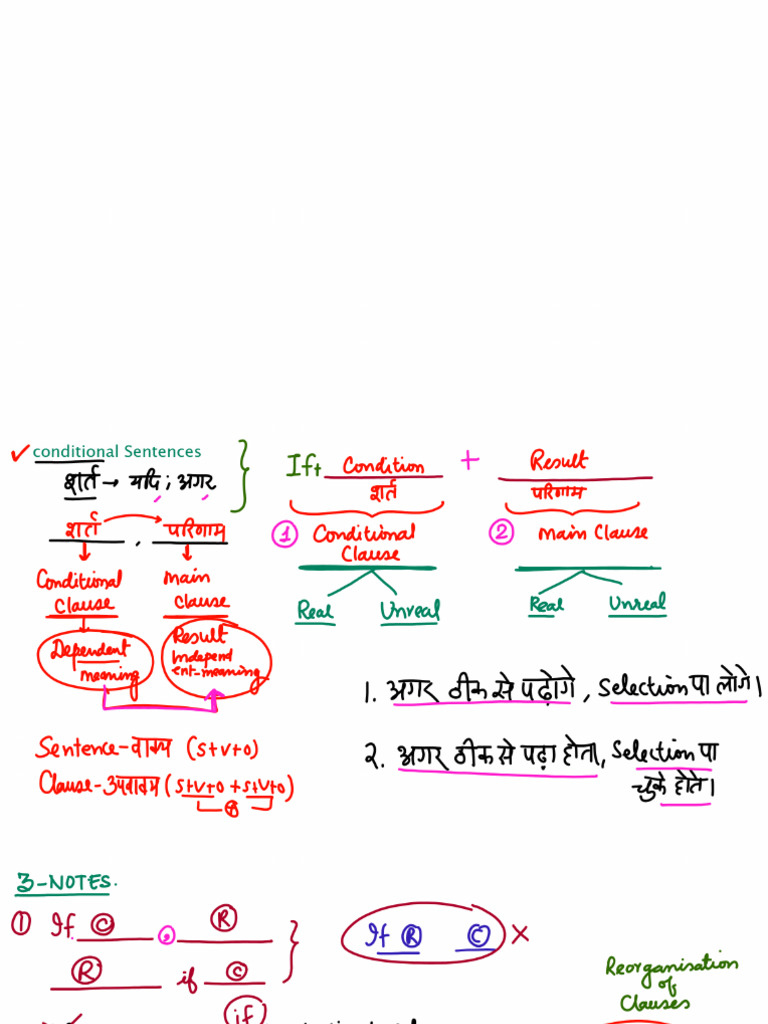 ✓ conditional Sentences
शर्त → यदि ; अगर
शर्त , परिणाम
Conditional Clause
Main Clause
Dependent meaning
Result Independent-meaning
Sentence-वाक्य (S+V+O)
Clause-उपवाक्य (S+V+O + S+V+O)
If + Condition + Result
शर्त परिणाम
① Conditional Clause
② Main Clause
Real Unreal
Real Unreal
1. अगर ठीक से पढ़ोगे , Selection पा लोगे।
2. अगर ठीक से पढ़ा होता, Selection पा
चुके होते।
3-NOTES.
① If Ⓒ , Ⓡ
Ⓡ if Ⓒ
If Ⓡ Ⓒ ×
Reorganisation
of
Clauses
if